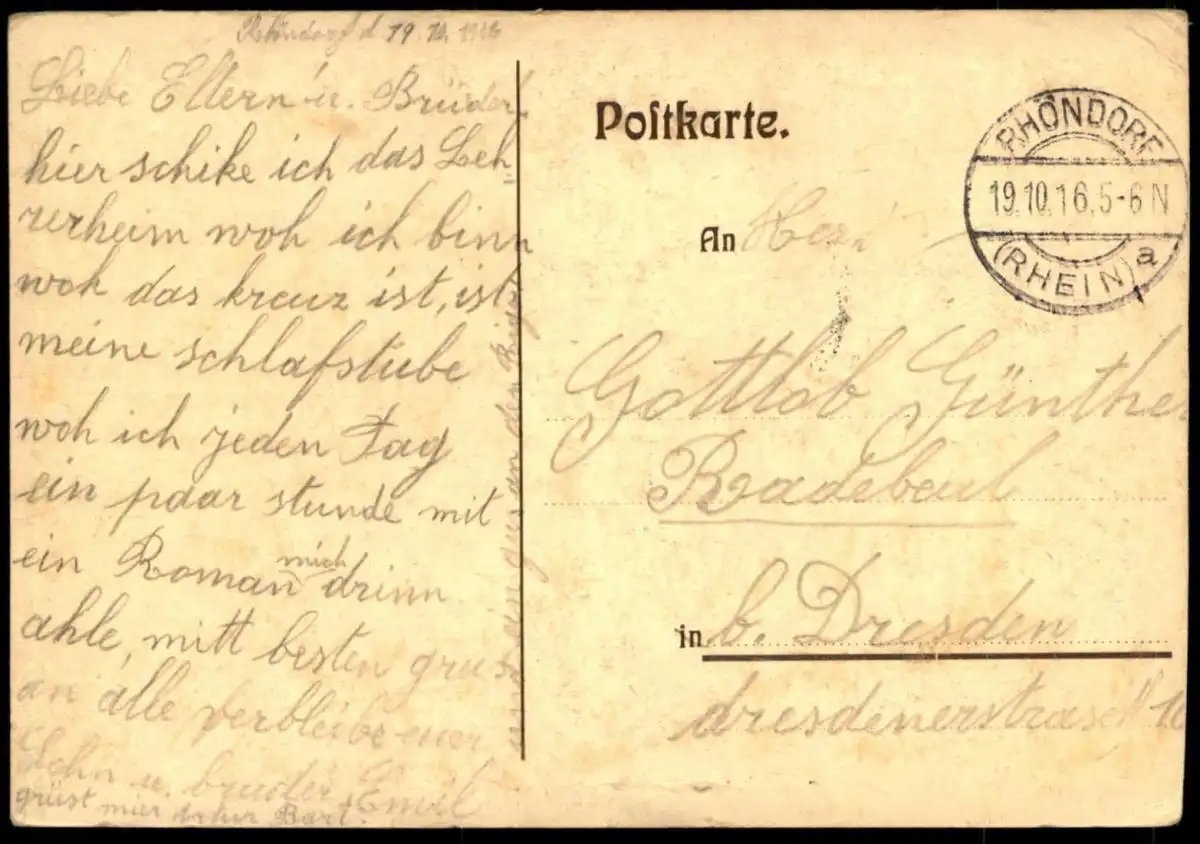 Rhöndorf d 19 10. 1916
Liebe Eltern u. Brüder,
hier schike ich das Leh-
rerheim woh ich binn
woh das kreuz ist, ist
meine schlafstube
woh ich jeden Tag
ein paar stunde mit
ein Roman mich drinn
ahle, mitt besten grus
an alle verbleibe euer
Sohn u. bruder Emil
grüst mier Bart.
an den
Postkarte.
An Herrn
Gottlob Günther
Radebeul
in b. Dresden
dresdenerstrase 10
RHÖNDORF
19.10.16.5-6N
(RHEIN) a